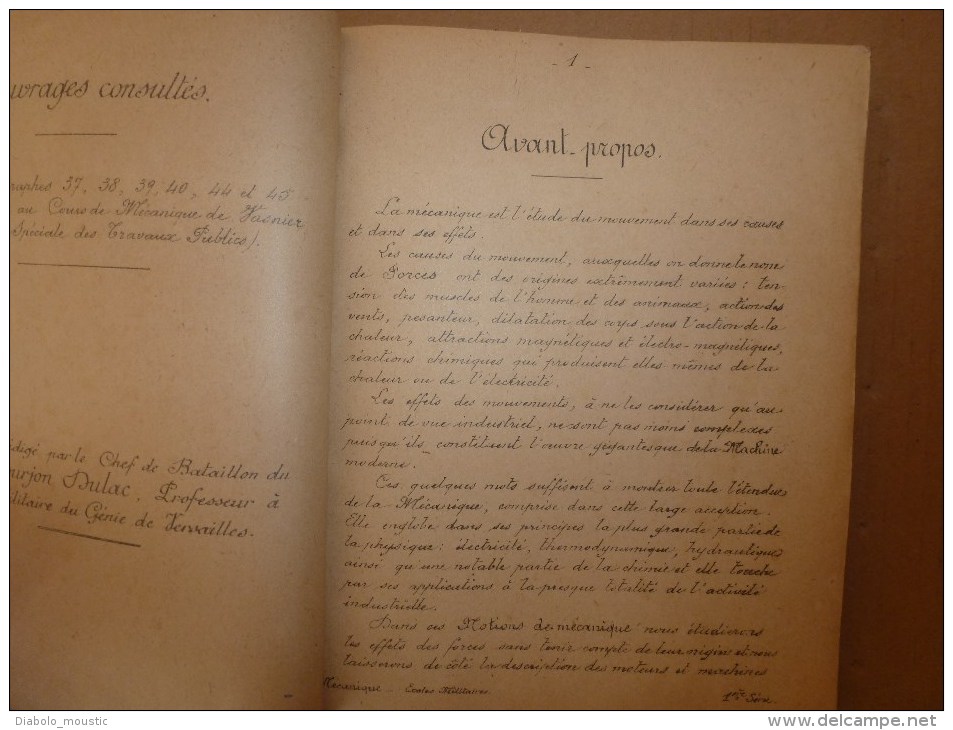 uvrages consultés.
raphes 37, 38, 39, 40, 44 et 45
au Cours de Mécanique de Vasnier
Spéciale des Travaux Publics).
digé par le Chef de Bataillon du
urjon Dulac, Professeur à
litaire du Génie de Versailles.
- 1 -
Avant-propos.
La mécanique est l'étude du mouvement dans ses causes
et dans ses effets.
Les causes du mouvement, auxquelles on donne le nom
de Forces ont des origines extrêmement variées : ten-
sion des muscles de l'homme et des animaux, action des
vents, pesanteur, dilatation des corps sous l'action de la
chaleur, attractions magnétiques et électro-magnétiques,
réactions chimiques qui produisent elles mêmes de la
chaleur ou de l'électricité.
Les effets des mouvements, à ne les considérer qu'au
point de vue industriel, ne sont pas moins complexes
puisqu'ils constituent l'œuvre gigantesque de la Machine
moderne.
Ces quelques mots suffisent à montrer toute l'étendue
de la Mécanique, comprise dans cette large acception.
Elle englobe dans ses principes la plus grande partie de
la physique : électricité, thermodynamique, hydraulique,
ainsi qu'une notable partie de la chimie et elle touche
par ses applications à la presque totalité de l'activité
industrielle.
Dans ces Notions de mécanique nous étudierons
les effets des forces sans tenir compte de leur origine et nous
laisserons de côté la description des moteurs et machines
Mécanique - Ecoles Militaires. 1ère Série.
Diabolo_moustic
delcampe.net